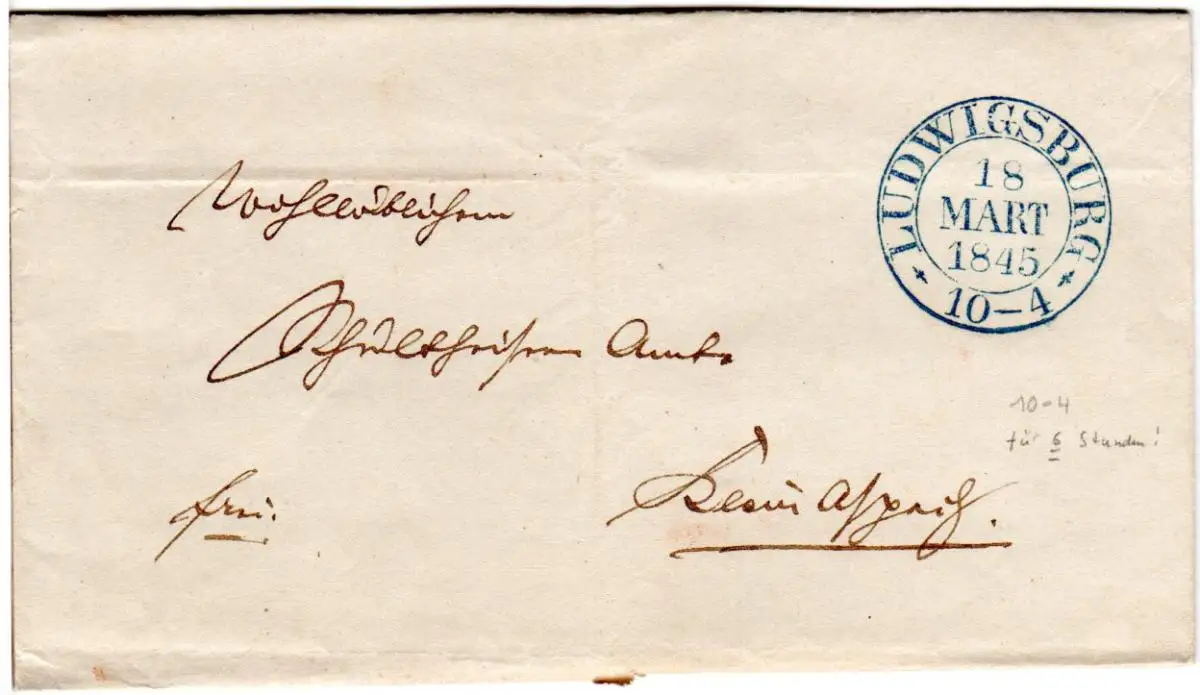 LUDWIGSBURG
18
MART
1845
10-4
Wohllöblichem
Schultheißen Amte
10-4
für 6 Stunden!
frei.
Klein Aspach.